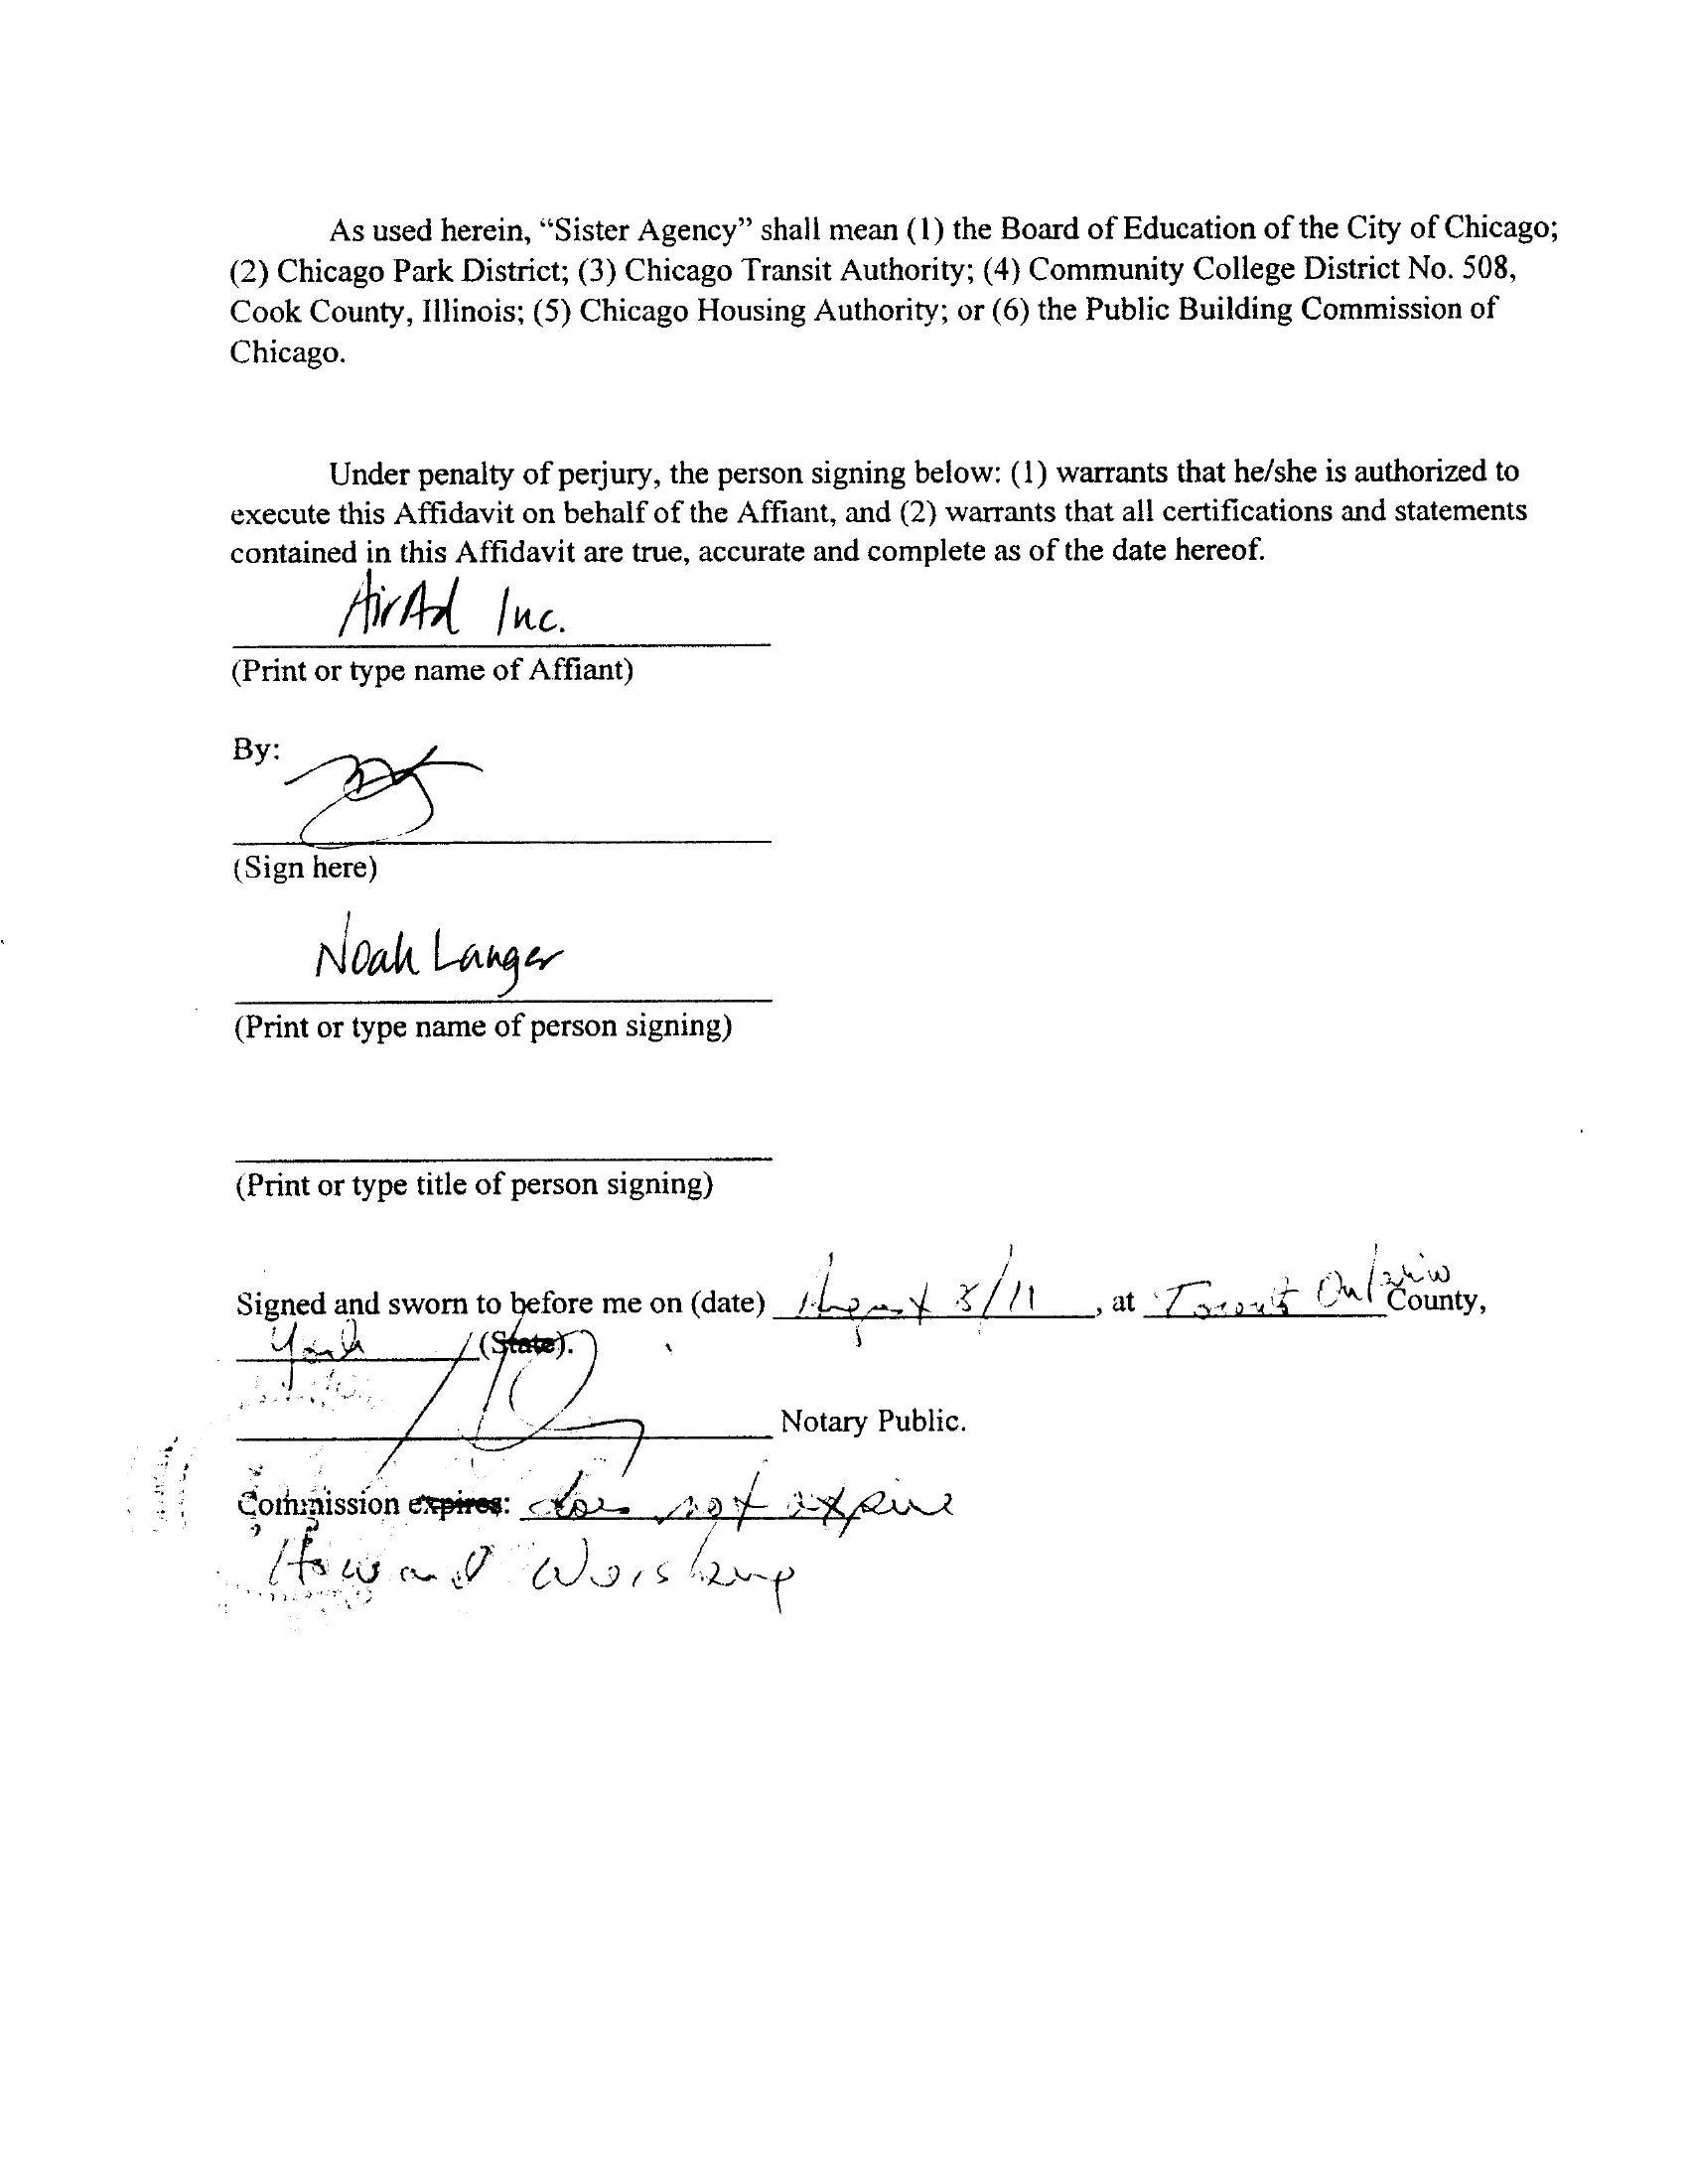 As used herein, “Sister Agency” shall mean (1) the Board of Education of the City of Chicago;
(2) Chicago Park District; (3) Chicago Transit Authority; (4) Community College District No. 508,
Cook County, Illinois; (5) Chicago Housing Authority; or (6) the Public Building Commission of
Chicago.
Under penalty of perjury, the person signing below: (1) warrants that he/she is authorized to
execute this Affidavit on behalf of the Affiant, and (2) warrants that all certifications and statements
contained in this Affidavit are true, accurate and complete as of the date hereof.
AirAd Inc.
(Print or type name of Affiant)
By:
(Sign here)
Noah Langer
(Print or type name of person signing)
(Print or type title of person signing)
Signed and sworn to before me on (date) August 8/11, at Toronto Ontario County,
York (State).
Notary Public.
Commission expires: does not expire
Howard